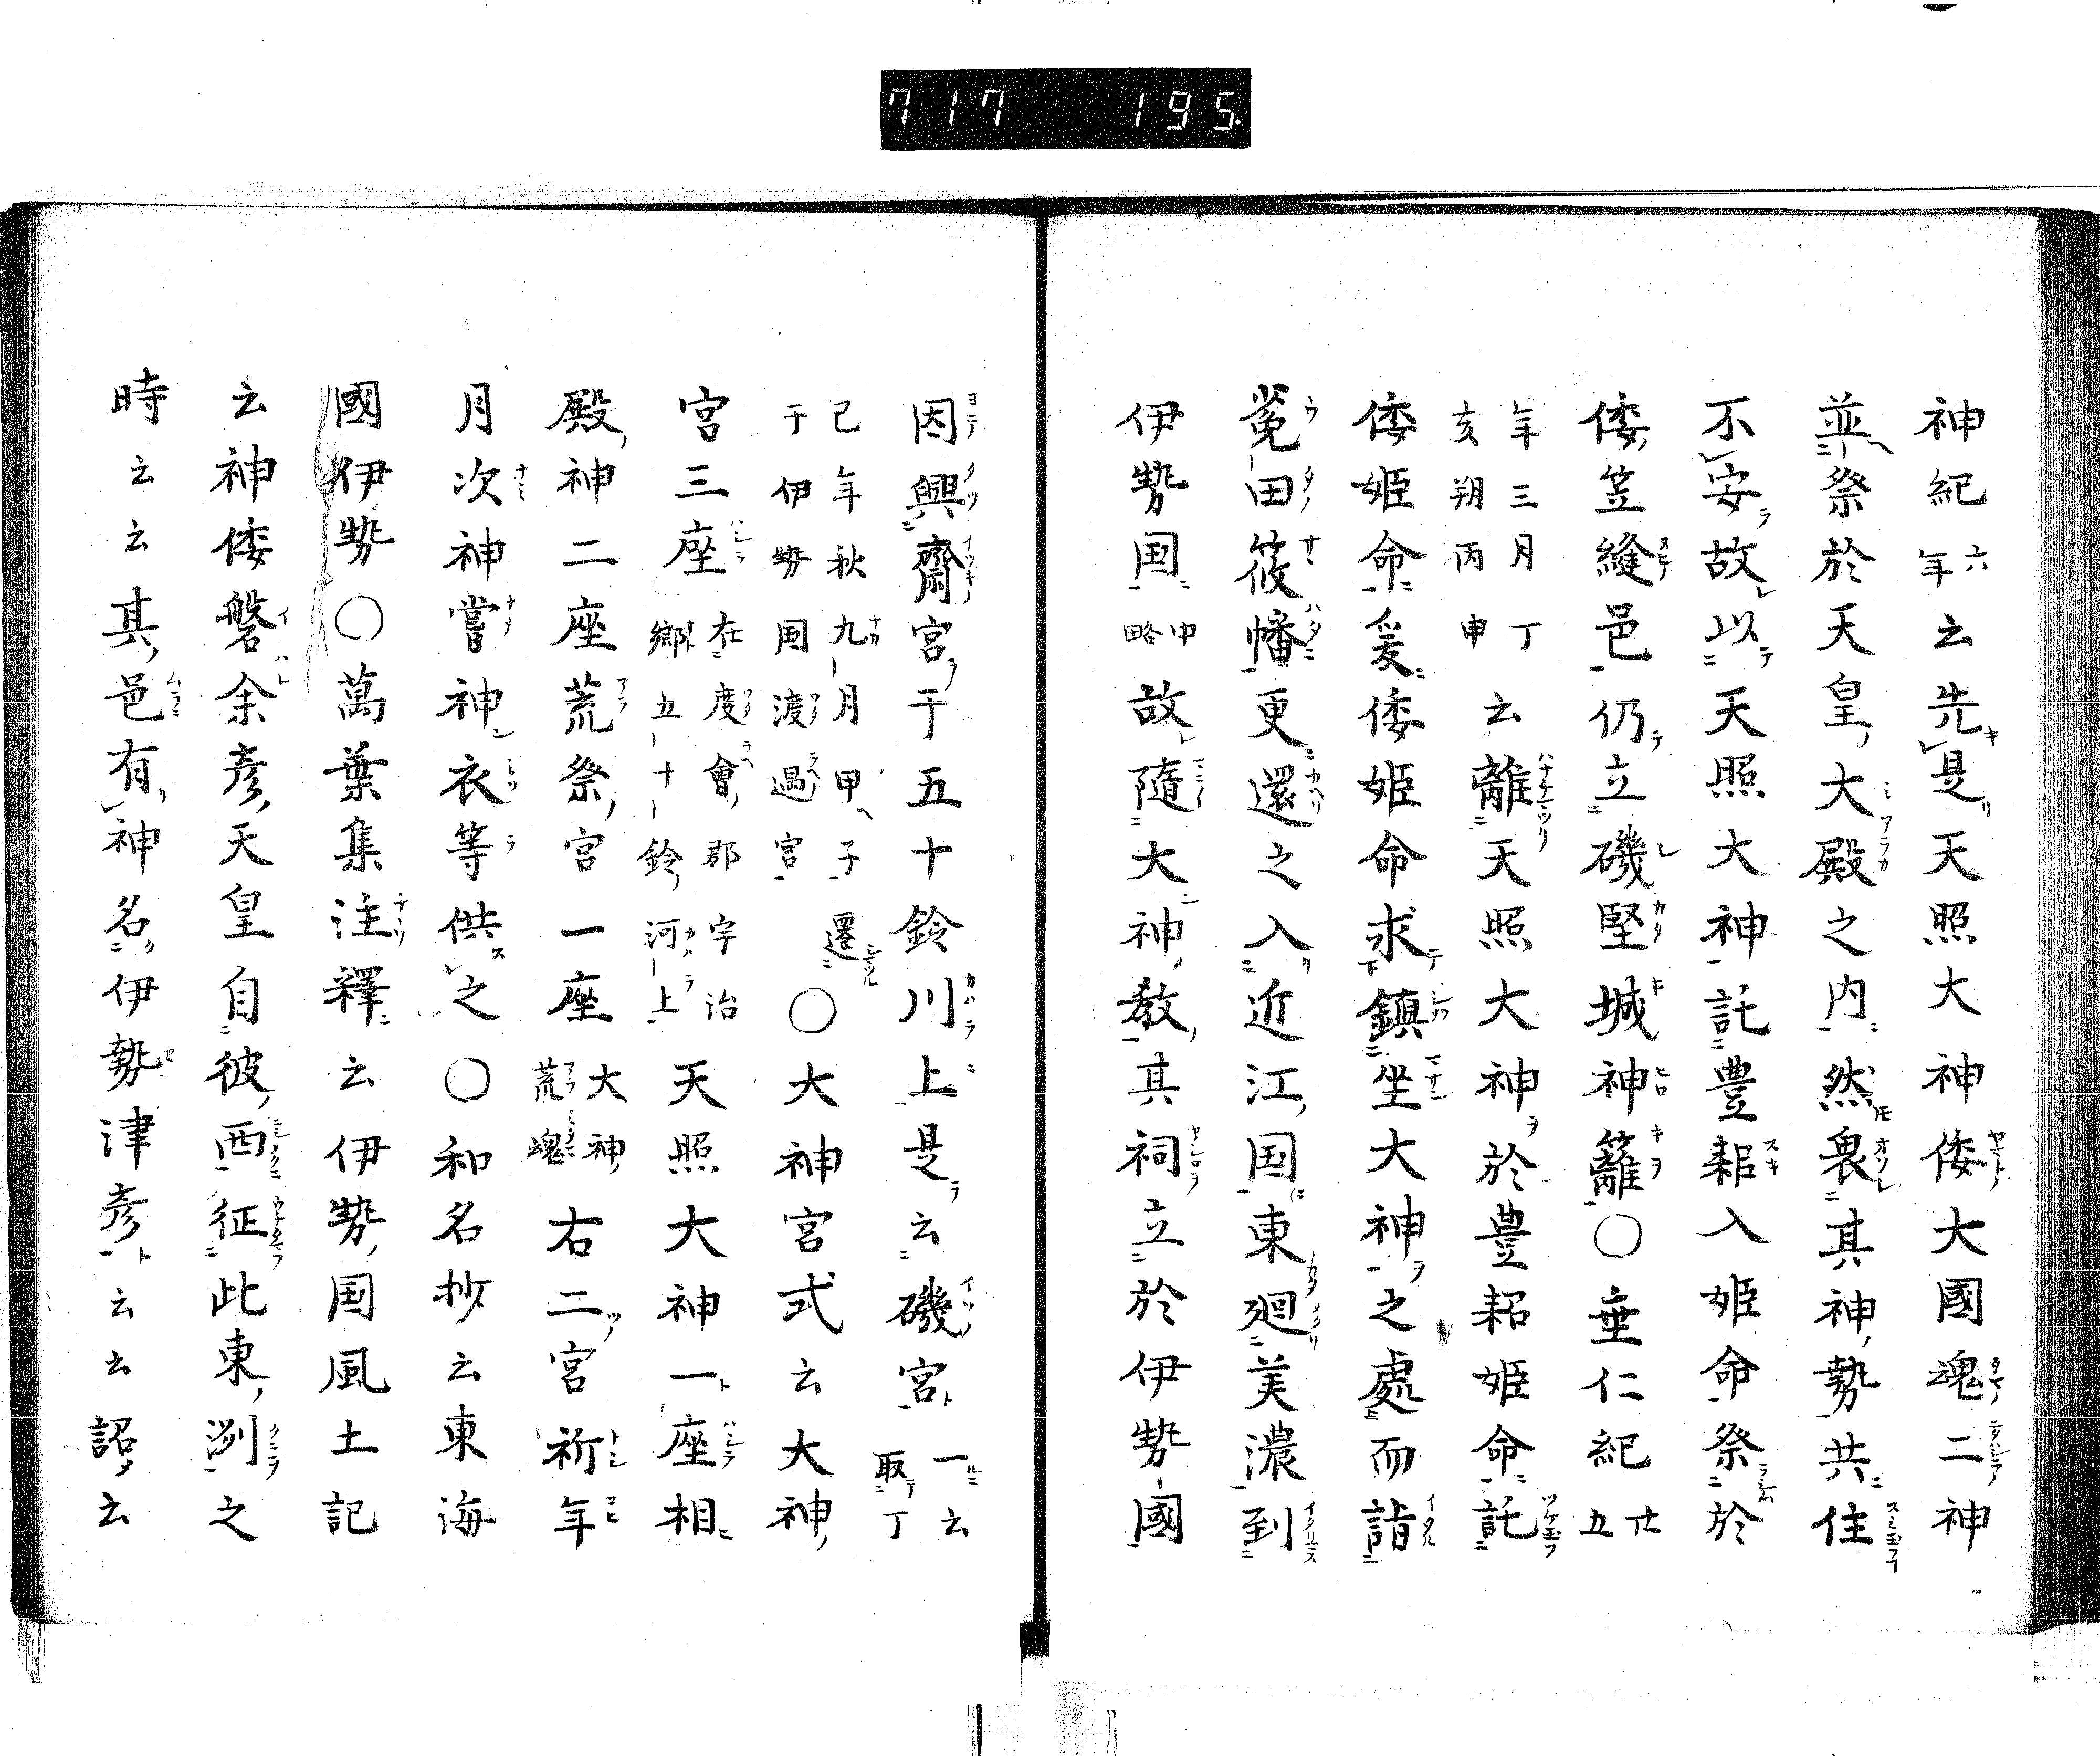 717 195.
神紀六年云先是天照大神倭大國魂二神
並祭於天皇大殿之内然畏其神勢共住
不安故以天照大神託豊耜入姫命祭於
倭笠縫邑仍立磯堅城神籬〇垂仁紀廿五
年三月丁亥朔丙申云離天照大神於豊耜姫命託
倭姫命爰倭姫命求鎮坐大神之處而詣
菟田筱幡更還之入近江国東廻美濃到
伊勢国中略故隨大神教其祠立於伊勢國
因興齋宮于五十鈴川上是云磯宮一云取丁
巳年秋九月甲子遷于伊勢国渡遇宮〇大神宮式云大神
宮三座在度會郡宇治郷五十鈴河上天照大神一座相
殿神二座荒祭宮一座大神荒魂右二宮祈年
月次神嘗神衣等供之〇和名抄云東海
國伊勢〇萬葉集注釋云伊勢国風土記
云神倭磐余彦天皇自彼西征此東洌之
時云云其邑有神名伊勢津彦云云詔云